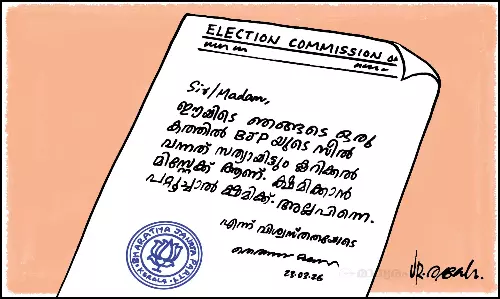 ELECTION COMMISSION
Sir/Madam,
ഈയിടെ ഞങ്ങടെ ഒരു
കത്തിൽ BJP യുടെ സീൽ
വന്നത് സത്യായിട്ടും ക്ലറിക്കൽ
മിസ്റ്റേക്ക് ആണ്. ക്ഷമിക്കാൻ
പറ്റുച്ചാൽ ക്ഷമിക്ക്. അല്ലപിന്നെ.
എന്ന് വിശ്വസ്തതയോടെ
23-03-26
BHARATIYA JANATA PARTY
KERALA